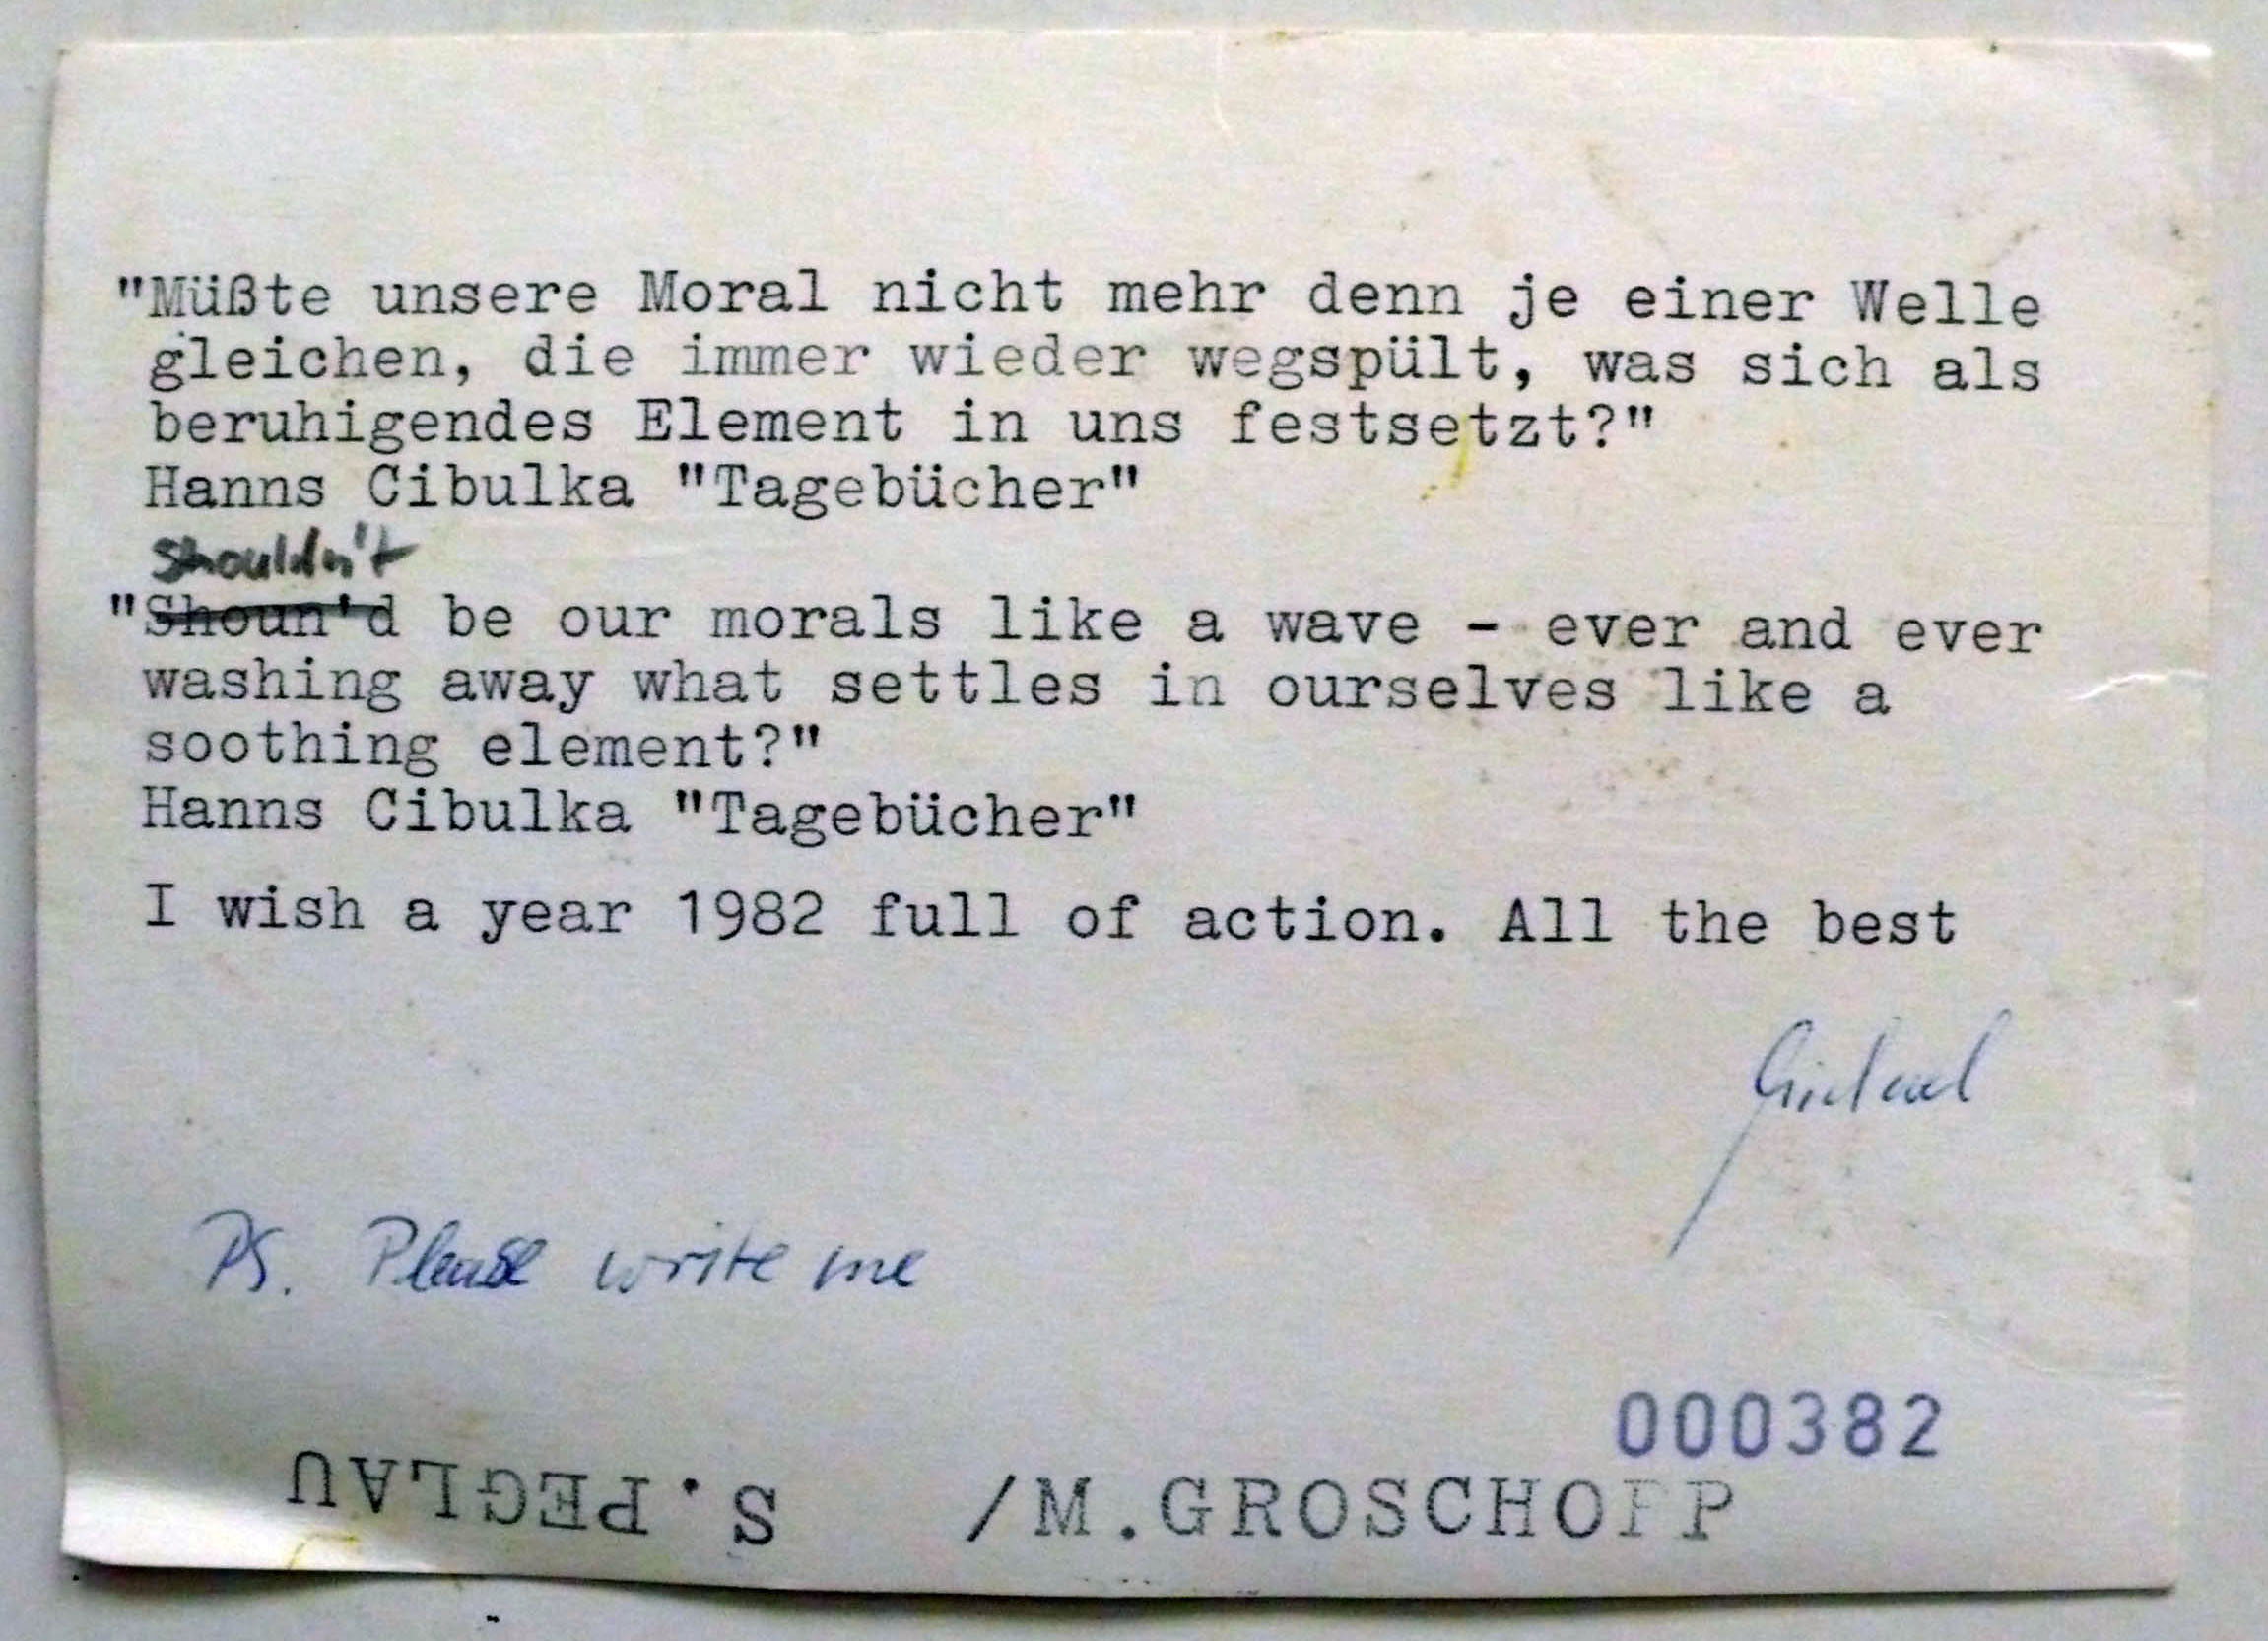 "Müßte unsere Moral nicht mehr denn je einer Welle
gleichen, die immer wieder wegspült, was sich als
beruhigendes Element in uns festsetzt?"
Hanns Cibulka "Tagebücher"
shouldn't
"Shoun'd be our morals like a wave - ever and ever
washing away what settles in ourselves like a
soothing element?"
Hanns Cibulka "Tagebücher"
I wish a year 1982 full of action. All the best
PS. Please write me
000382
S. PEGLAU /M.GROSCHOPP